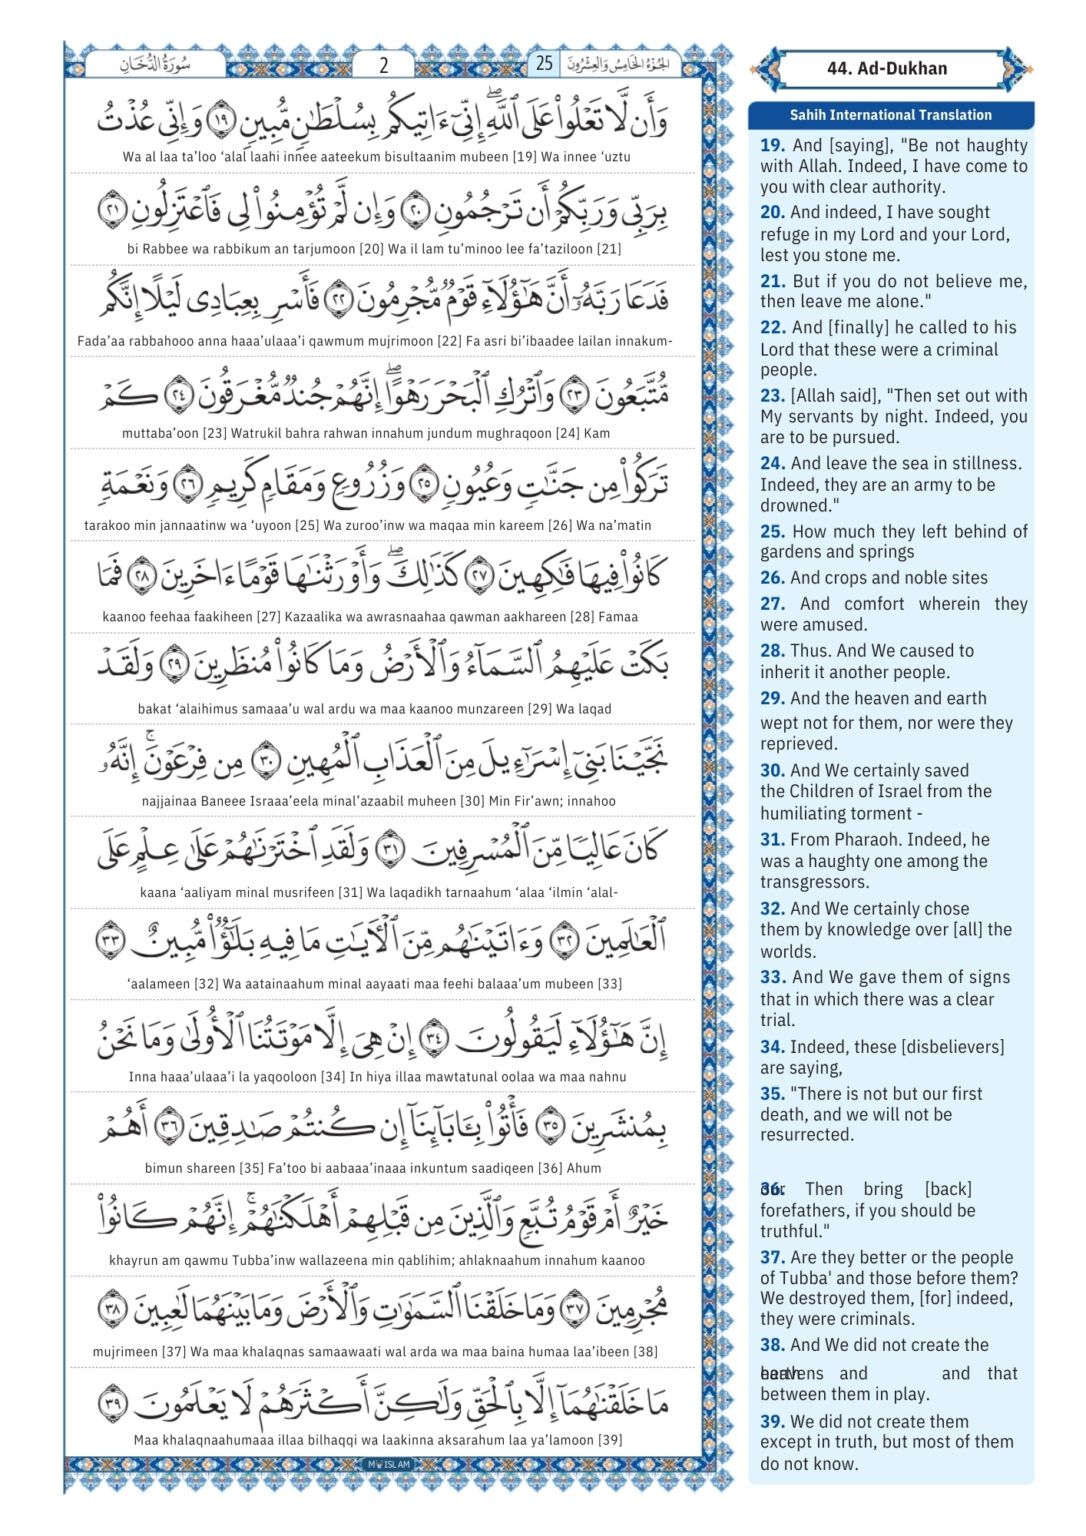 سُورَةُ الدُّخَانِ
2
25
الجُزْءُ الخَامِسُ وَالعِشْرُونَ
وَأَن لَّا تَعْلُوا۟ عَلَى ٱللَّهِ ۖ إِنِّىٓ ءَاتِيكُم بِسُلْطَـٰنٍ مُّبِينٍ ١٩ وَإِنِّى عُذْتُ
Wa al laa ta’loo ‘alal laahi innee aateekum bisultaanim mubeen [19] Wa innee ‘uztu
بِرَبِّى وَرَبِّكُمْ أَن تَرْجُمُونِ ٢٠ وَإِن لَّمْ تُؤْمِنُوا۟ لِى فَٱعْتَزِلُونِ ٢١
bi Rabbee wa rabbikum an tarjumoon [20] Wa il lam tu’minoo lee fa’taziloon [21]
فَدَعَا رَبَّهُۥٓ أَنَّ هَـٰٓؤُلَآءِ قَوْمٌ مُّجْرِمُونَ ٢٢ فَأَسْرِ بِعِبَادِى لَيْلًا إِنَّكُم
Fada’aa rabbahooo anna haaa’ulaaa’i qawmum mujrimoon [22] Fa asri bi’ibaadee lailan innakum-
مُّتَّبَعُونَ ٢٣ وَٱتْرُكِ ٱلْبَحْرَ رَهْوًا ۖ إِنَّهُمْ جُندٌ مُّغْرَقُونَ ٢٤ كَمْ
muttaba’oon [23] Watrukil bahra rahwan innahum jundum mughraqoon [24] Kam
تَرَكُوا۟ مِن جَنَّـٰتٍ وَعُيُونٍ ٢٥ وَزُرُوعٍ وَمَقَامٍ كَرِيمٍ ٢٦ وَنَعْمَةٍ
tarakoo min jannaatinw wa ‘uyoon [25] Wa zuroo’inw wa maqaa min kareem [26] Wa na’matin
كَانُوا۟ فِيهَا فَـٰكِهِينَ ٢٧ كَذَٰلِكَ ۖ وَأَوْرَثْنَـٰهَا قَوْمًا ءَاخَرِينَ ٢٨ فَمَا
kaanoo feehaa faakiheen [27] Kazaalika wa awrasnaahaa qawman aakhareen [28] Famaa
بَكَتْ عَلَيْهِمُ ٱلسَّمَآءُ وَٱلْأَرْضُ وَمَا كَانُوا۟ مُنظَرِينَ ٢٩ وَلَقَدْ
bakat ‘alaihimus samaaa’u wal ardu wa maa kaanoo munzareen [29] Wa laqad
نَجَّيْنَا بَنِىٓ إِسْرَٰٓءِيلَ مِنَ ٱلْعَذَابِ ٱلْمُهِينِ ٣٠ مِن فِرْعَوْنَ ۚ إِنَّهُۥ
najjainaa Baneee Israaa’eela minal’azaabil muheen [30] Min Fir’awn; innahoo
كَانَ عَالِيًا مِّنَ ٱلْمُسْرِفِينَ ٣١ وَلَقَدِ ٱخْتَرْنَـٰهُمْ عَلَىٰ عِلْمٍ عَلَى
kaana ‘aaliyam minal musrifeen [31] Wa laqadikh tarnaahum ‘alaa ‘ilmin ‘alal-
ٱلْعَـٰلَمِينَ ٣٢ وَءَاتَيْنَـٰهُم مِّنَ ٱلْـَٔايَـٰتِ مَا فِيهِ بَلَـٰٓؤٌا۟ مُّبِينٌ ٣٣
‘aalameen [32] Wa aatainaahum minal aayaati maa feehi balaaa’um mubeen [33]
إِنَّ هَـٰٓؤُلَآءِ لَيَقُولُونَ ٣٤ إِنْ هِىَ إِلَّا مَوْتَتُنَا ٱلْأُولَىٰ وَمَا نَحْنُ
Inna haaa’ulaaa’i la yaqooloon [34] In hiya illaa mawtatunal oolaa wa maa nahnu
بِمُنشَرِينَ ٣٥ فَأْتُوا۟ بِـَٔابَآئِنَآ إِن كُنتُمْ صَـٰدِقِينَ ٣٦ أَهُمْ
bimun shareen [35] Fa’too bi aabaaa’inaaa inkuntum saadiqeen [36] Ahum
خَيْرٌ أَمْ قَوْمُ تُبَّعٍ وَٱلَّذِينَ مِن قَبْلِهِمْ ۚ أَهْلَكْنَـٰهُمْ ۖ إِنَّهُمْ كَانُوا۟
khayrun am qawmu Tubba’inw wallazeena min qablihim; ahlaknaahum innahum kaanoo
مُجْرِمِينَ ٣٧ وَمَا خَلَقْنَا ٱلسَّمَـٰوَٰتِ وَٱلْأَرْضَ وَمَا بَيْنَهُمَا لَـٰعِبِينَ ٣٨
mujrimeen [37] Wa maa khalaqnas samaawaati wal arda wa maa baina humaa laa’ibeen [38]
مَا خَلَقْنَـٰهُمَآ إِلَّا بِٱلْحَقِّ وَلَـٰكِنَّ أَكْثَرَهُمْ لَا يَعْلَمُونَ ٣٩
Maa khalaqnaahumaaa illaa bilhaqqi wa laakinna aksarahum laa ya’lamoon [39]
44. Ad-Dukhan
Sahih International Translation
19. And [saying], "Be not haughty
with Allah. Indeed, I have come to
you with clear authority.
20. And indeed, I have sought
refuge in my Lord and your Lord,
lest you stone me.
21. But if you do not believe me,
then leave me alone."
22. And [finally] he called to his
Lord that these were a criminal
people.
23. [Allah said], "Then set out with
My servants by night. Indeed, you
are to be pursued.
24. And leave the sea in stillness.
Indeed, they are an army to be
drowned."
25. How much they left behind of
gardens and springs
26. And crops and noble sites
27. And comfort wherein they
were amused.
28. Thus. And We caused to
inherit it another people.
29. And the heaven and earth
wept not for them, nor were they
reprieved.
30. And We certainly saved
the Children of Israel from the
humiliating torment -
31. From Pharaoh. Indeed, he
was a haughty one among the
transgressors.
32. And We certainly chose
them by knowledge over [all] the
worlds.
33. And We gave them of signs
that in which there was a clear
trial.
34. Indeed, these [disbelievers]
are saying,
35. "There is not but our first
death, and we will not be
resurrected.
36. Then bring [back]
forefathers, if you should be
truthful."
37. Are they better or the people
of Tubba' and those before them?
We destroyed them, [for] indeed,
they were criminals.
38. And We did not create the
and and that
between them in play.
39. We did not create them
except in truth, but most of them
do not know.